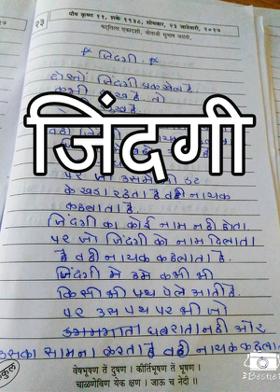 पौष कृष्ण ११, शके १९३८, सोमवार, २३ जानेवारी, २०१७
२३
षट्तिला एकादशी, नेताजी सुभाष जयंती.
* जिंदगी *
दोस्तों जिंदगी एक खेल है
कभी
जिंदगी
पर जो उसमें भी डट
के खडा रहता है वही नायक
कहलाता है.
जिंदगी का कोई नाम नहीं होता.
पर जो जिंदगी को नाम दिलाता
है वही नायक कहलाता है.
जिंदगी में हम कभी भी
किसी भी पथ पे आते है
पर उस पथ पर भी जो
डगमगाता घबराता नहीं और
उसका सामना करता है वही नायक कहलाता
वेषभूषण तें दूषण । कीर्तिभूषण तें भूषण ।
चाळणेविण येक क्षण । जाऊ च नेदी ।
Bestie